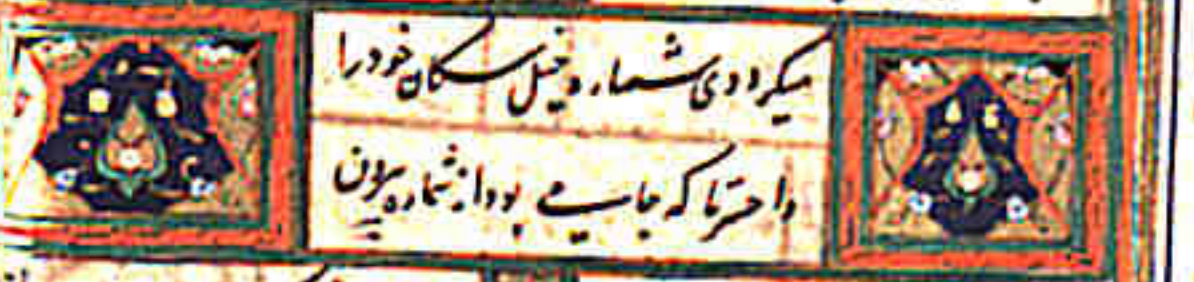 میکرد دی شمار خیل سکان خود را
واحسرتا که جامی بود از شماره بیرون